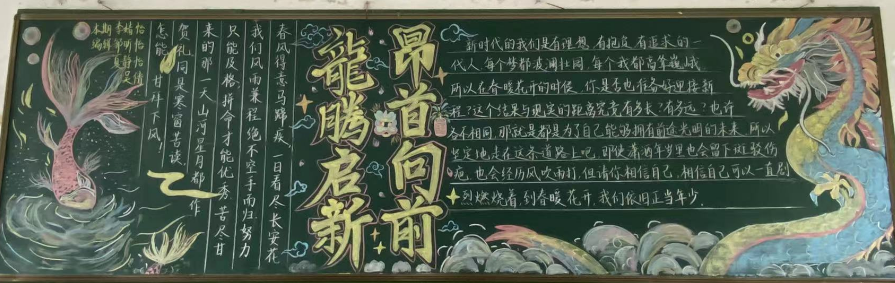 昂首向前
龍腾启新
新时代的我们是有理想、有抱负、有追求的一
代人,每个梦都波澜壮阔,每个我都高擎
所以在春暖花开的时候,你是否也准备好迎接新
程?这个结果与现实的距离究竟有多长?有多远?也许
各不相同,那就是都是为了自己能够拥有前途光明的未来,所以
坚定地走在这条道路上吧,即使潇洒年岁里也会留下斑驳伤
疤,也会经历风吹雨打,但请你相信自己,相信自己可以一直
到燃烧着,到春暖花开,我们依旧正当年少
春风得意马蹄疾,一日看尽长安花
我们风雨兼程绝不空手而归,努力
只能及格,拼命才能优秀,苦尽甘
来的那一天,山河星月都作
贺礼,同是寒窗苦读,
怎能甘拜下风!
本期
编辑